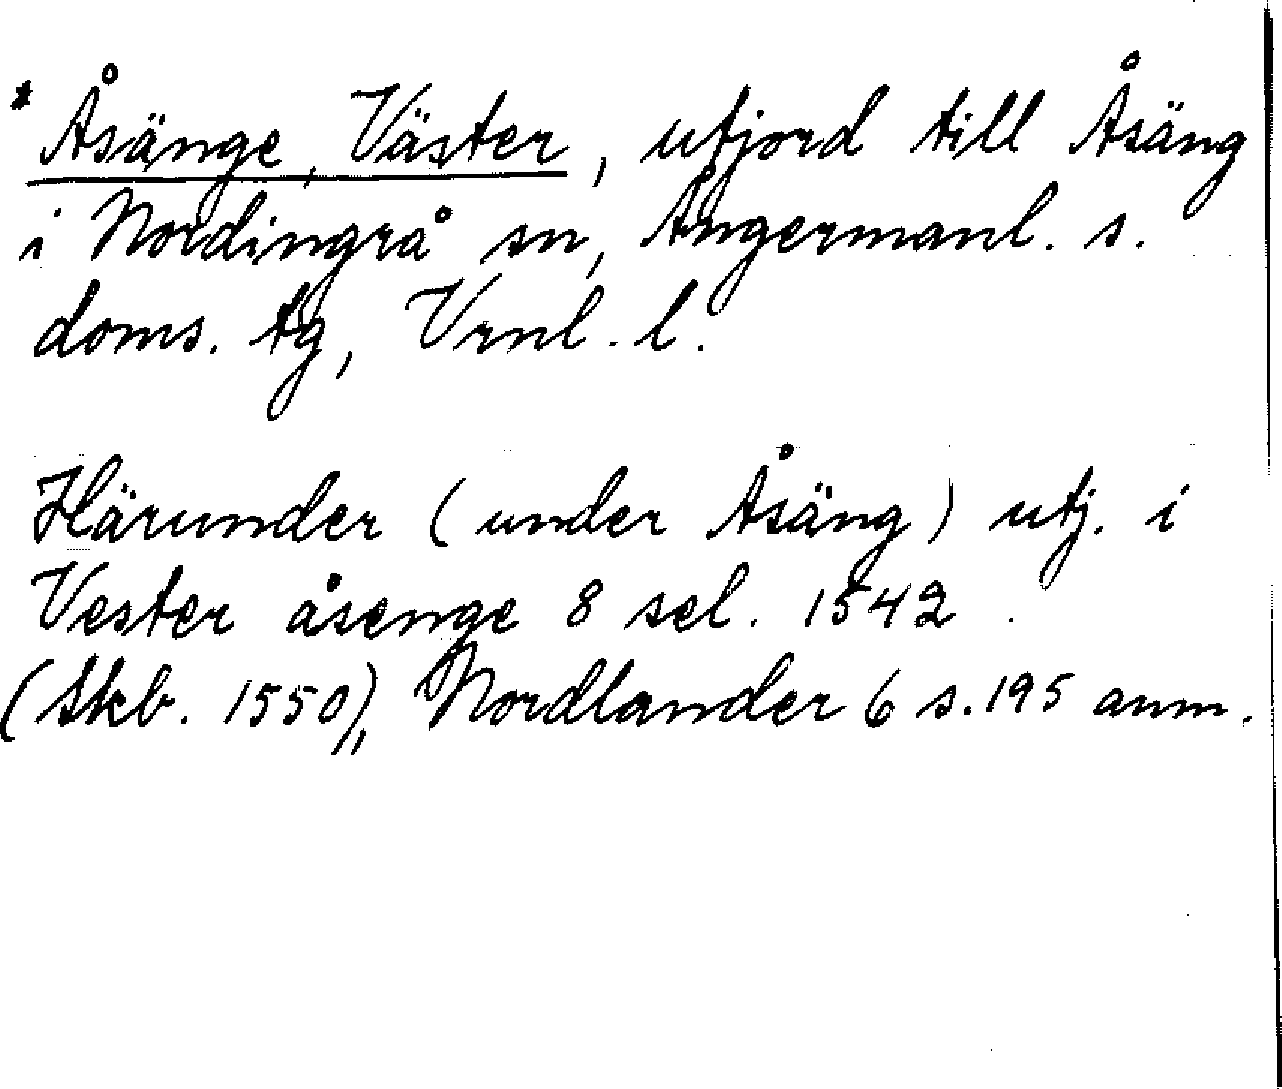 * Åsänge, Väster, utjord till Åsäng
i Nordingrå sn, Ångermanl. s.
doms. tg, Vrnl. l.
Härunder (under Åsäng) utj. i
Vester åsenge 8 sel. 1542
(Skb. 1550), Nordlander 6 s. 195 anm.